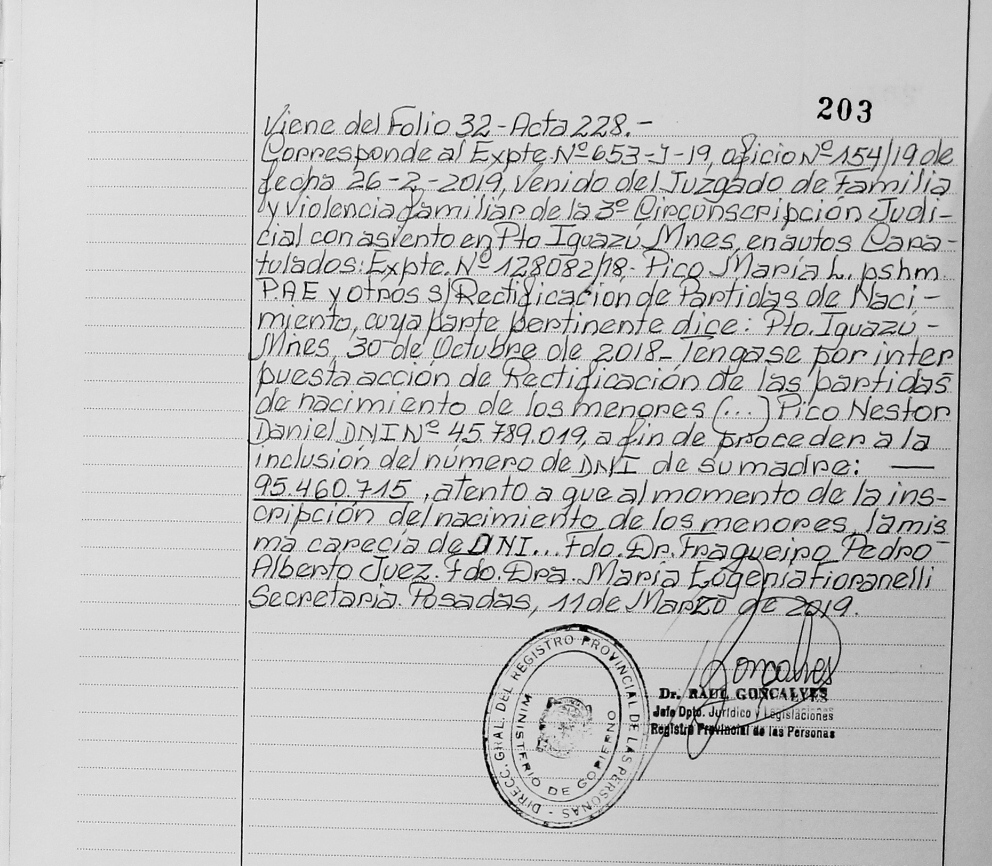 203
Viene del Folio 32-Acta 228.-
Corresponde al Expte. Nº 653-J-19, oficio Nº 154/19 de
fecha 26-2-2019, venido del Juzgado de Familia
y Violencia familiar de la 3º Circonscripción Judi-
cial con asiento en Pto Iguazú Mnes, en autos Cara-
tulados: Expte. Nº 128082/18- Pico María L. pshm
P.AE y otros S/Rectificacion de Partidas de Naci-
miento, cuya parte pertinente dice: Pto. Iguazú-
Mnes, 30 de Octubre de 2018- Tengase por inter
puesta acción de Rectificación de las partidas
de nacimiento de los menores (...) Pico Nestor
Daniel DNI Nº 45.789.019, a fin de proceder a la
inclusión del número de DNI de su madre: —
95.460.715, atento a que al momento de la ins-
cripción del nacimiento de los menores, la mis
ma carecía de DNI... Fdo. Dr. Fragueiro Pedro-
Alberto Juez. Fdo. Dra. María Eugenia Fioranelli
Secretaria. Posadas, 11 de Marzo de 2019.
Goncalves
Dr. RAUL GONCALVES
Jefe Dpto. Jurídico y Legislaciones
Registro Provincial de las Personas
DIRECC. GRAL. DEL REGISTRO PROVINCIAL DE LAS PERSONAS -
MINISTERIO DE GOBIERNO